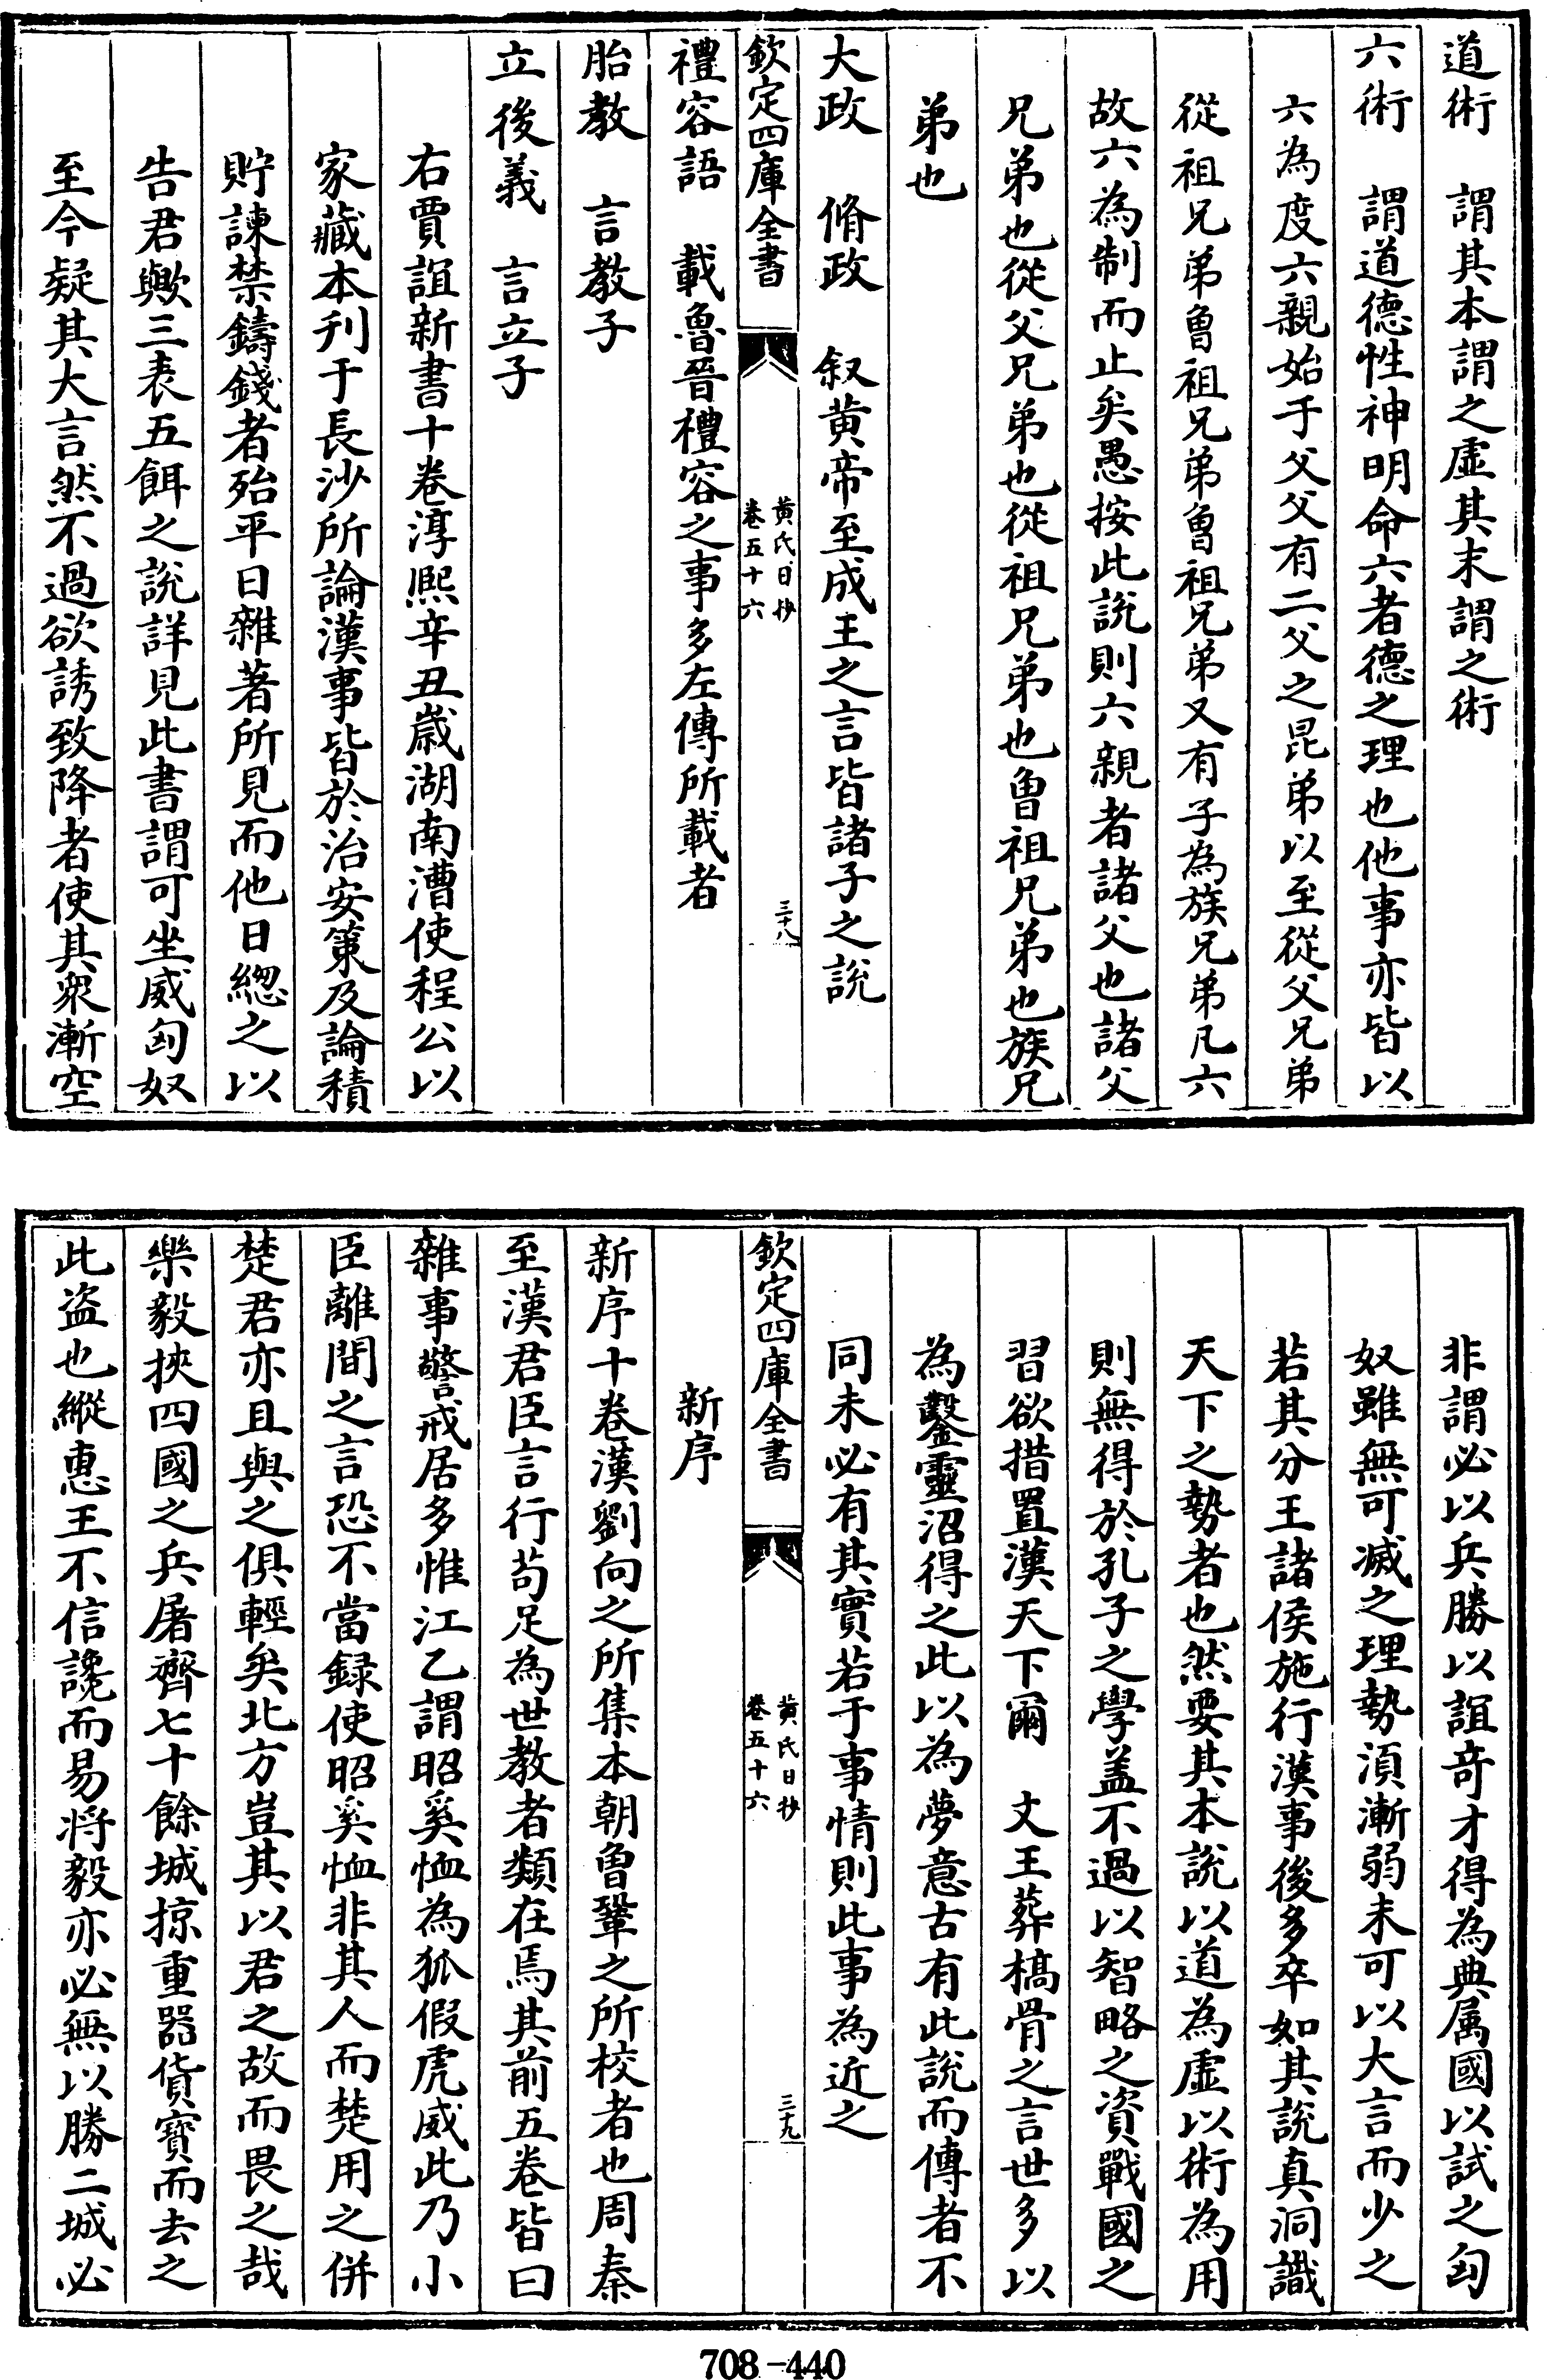 道術　謂其本謂之虚其末謂之術
六術　謂道德性神明命六者德之理也他事亦皆以
六為度六親始于父父有二父之昆弟以至從父兄弟
從祖兄弟曾祖兄弟曾祖兄弟又有子為族兄弟凡六
故六為制而止矣愚按此說則六親者諸父也諸父
兄弟也從父兄弟也從祖兄弟也曾祖兄弟也族兄
弟也
大政　脩政　叙黄帝至成王之言皆諸子之說
欽定四庫全書
黄氏日抄
卷五十六
三十八
禮容語　載魯晉禮容之事多左傳所載者
胎教　言教子
立後義　言立子
右賈誼新書十卷淳熙辛丑歲湖南漕使程公以
家藏本刋于長沙所論漢事皆於治安策及論積
貯諫禁鑄錢者殆平日雜著所見而他日緫之以
告君歟三表五餌之說詳見此書謂可坐威匈奴
至今疑其大言然不過欲誘致降者使其衆漸空
非謂必以兵勝以誼竒才得為典属國以試之匈
奴雖無可滅之理勢湏漸弱未可以大言而少之
若其分王諸侯施行漢事後多卒如其說真洞識
天下之勢者也然要其本說以道為虚以術為用
則無得於孔子之學盖不過以智略之資戰國之
習欲措置漢天下爾　文王葬槁骨之言世多以
為鑿靈沼得之此以為夢意古有此說而傳者不
同未必有其實若于事情則此事為近之
欽定四庫全書
黄氏日抄
卷五十六
三十九
新序
新序十卷漢劉向之所集本朝曾鞏之所校者也周秦
至漢君臣言行茍足為世教者類在焉其前五卷皆曰
雜事警戒居多惟江乙謂昭奚恤為狐假虎威此乃小
臣離間之言恐不當録使昭奚恤非其人而楚用之併
楚君亦且與之俱輕矣北方豈其以君之故而畏之哉
樂毅挾四國之兵屠齊七十餘城掠重器貨寶而去之
此盗也縱惠王不信讒而易将毅亦必無以勝二城必
708-440